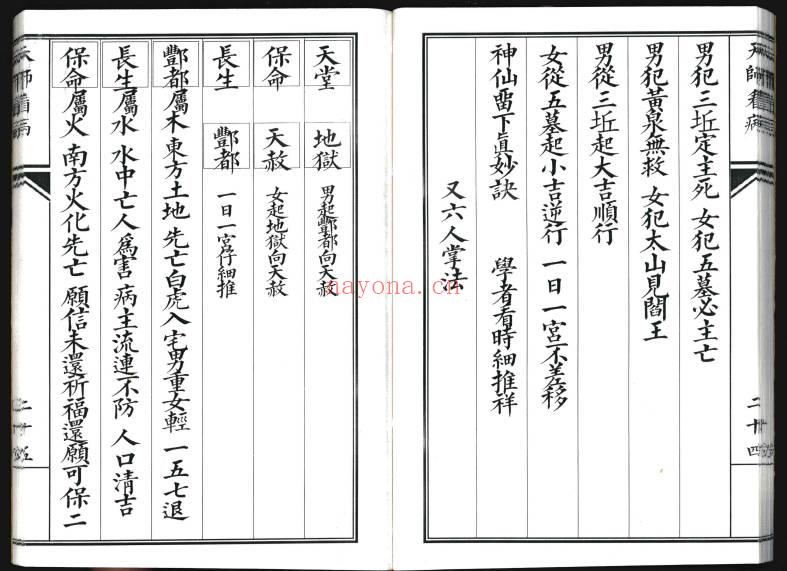 天師看病
二十四
男犯三坵定主死 女犯五墓必主亡
男犯黃泉無救 女犯太山見閻王
男從三坵起大吉順行
女從五墓起小吉逆行 一日一宮不差移
神仙畱下眞妙訣 學者看時細推祥
又六人掌法
天堂 地獄 男起酆都向天赦
保命 天赦 女起地獄向天赦
長生 酆都 一日一宮仔細推
酆都屬木 東方土地 先亡白虎入宅男重女輕 一五七退
長生屬水 水中亡人爲害 病主流連不防 人口清吉
保命屬火 南方火化先亡 願信未還祈福還願可保二
天師看病
二十五
nayona.cn